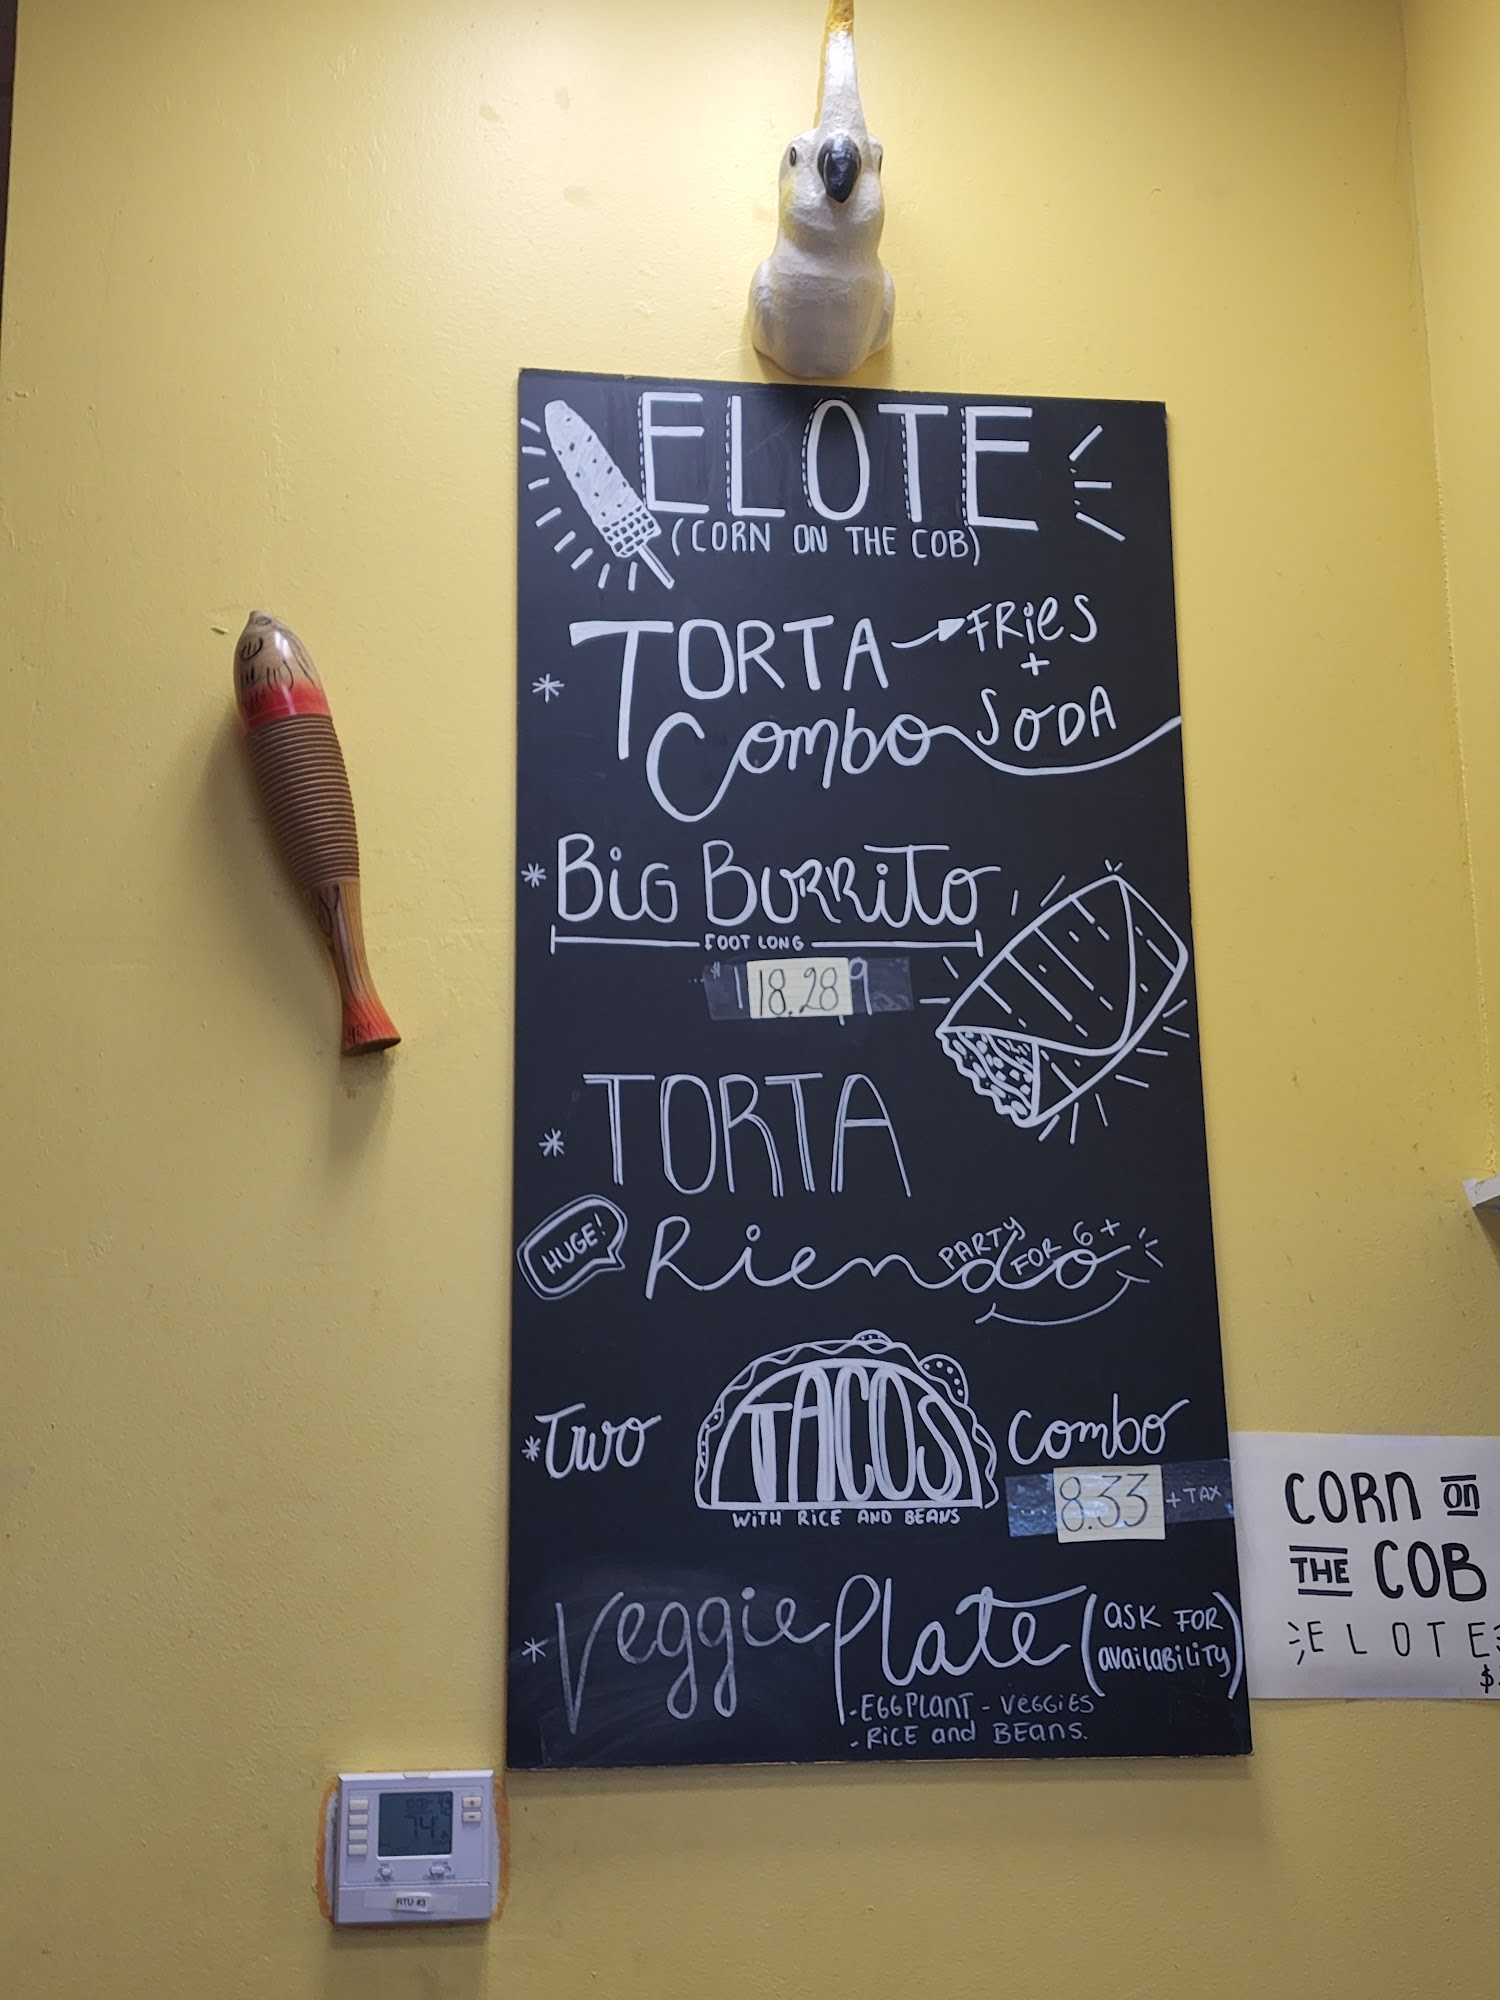 ELOTE
(CORN ON THE COB)
* TORTA → FRIES
+
Combo SODA
* BIG BURRITO
FOOT LONG
18.28
* TORTA
HUGE!
Riendo
PARTY FOR 6+
* Two TACOS Combo
WITH RICE AND BEANS
8.33 + TAX
* Veggie Plate (ASK FOR
AVAILABILITY)
- EGGPLANT - VEGGIES
- RICE and BEANS.
CORN on
THE COB
ELOTE
$
74
RTU #3